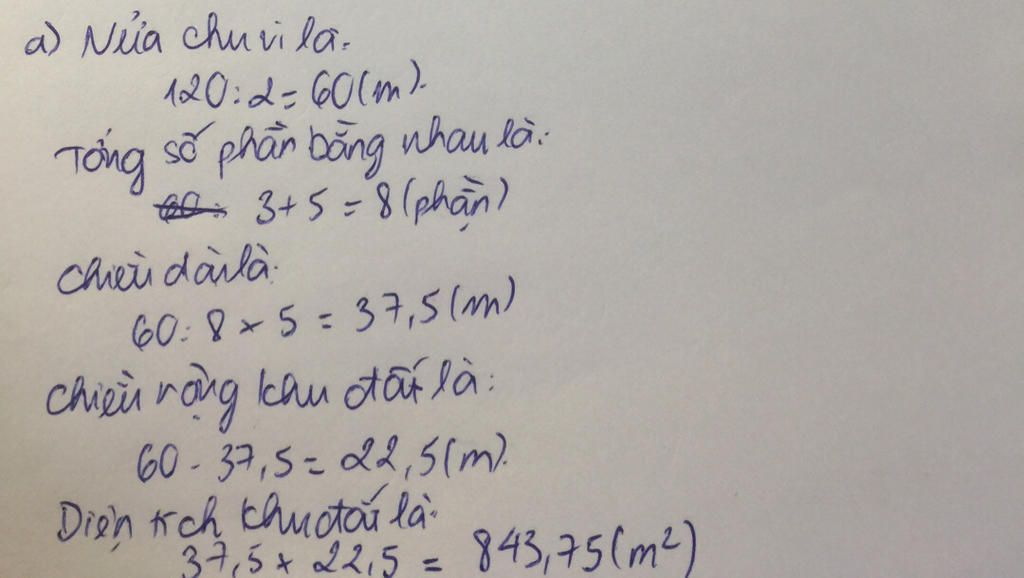 a) Nửa chu vi là:
120 : 2 = 60 (m).
Tổng số phần bằng nhau là:
3 + 5 = 8 (phần)
Chiều dài là:
60 : 8 × 5 = 37,5 (m)
Chiều rộng khu đất là:
60 - 37,5 = 22,5 (m).
Diện tích khu đất là:
37,5 × 22,5 = 843,75 (m²)